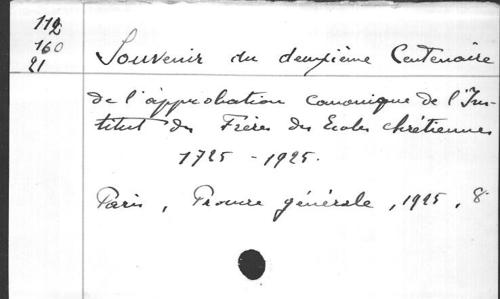 112
160
21
Souvenir du deuxième Centenaire
de l'approbation canonique de l'Ins-
titut des Frères des Ecoles chrétiennes
1725 - 1925.
Paris, Procure générale, 1925, 8°